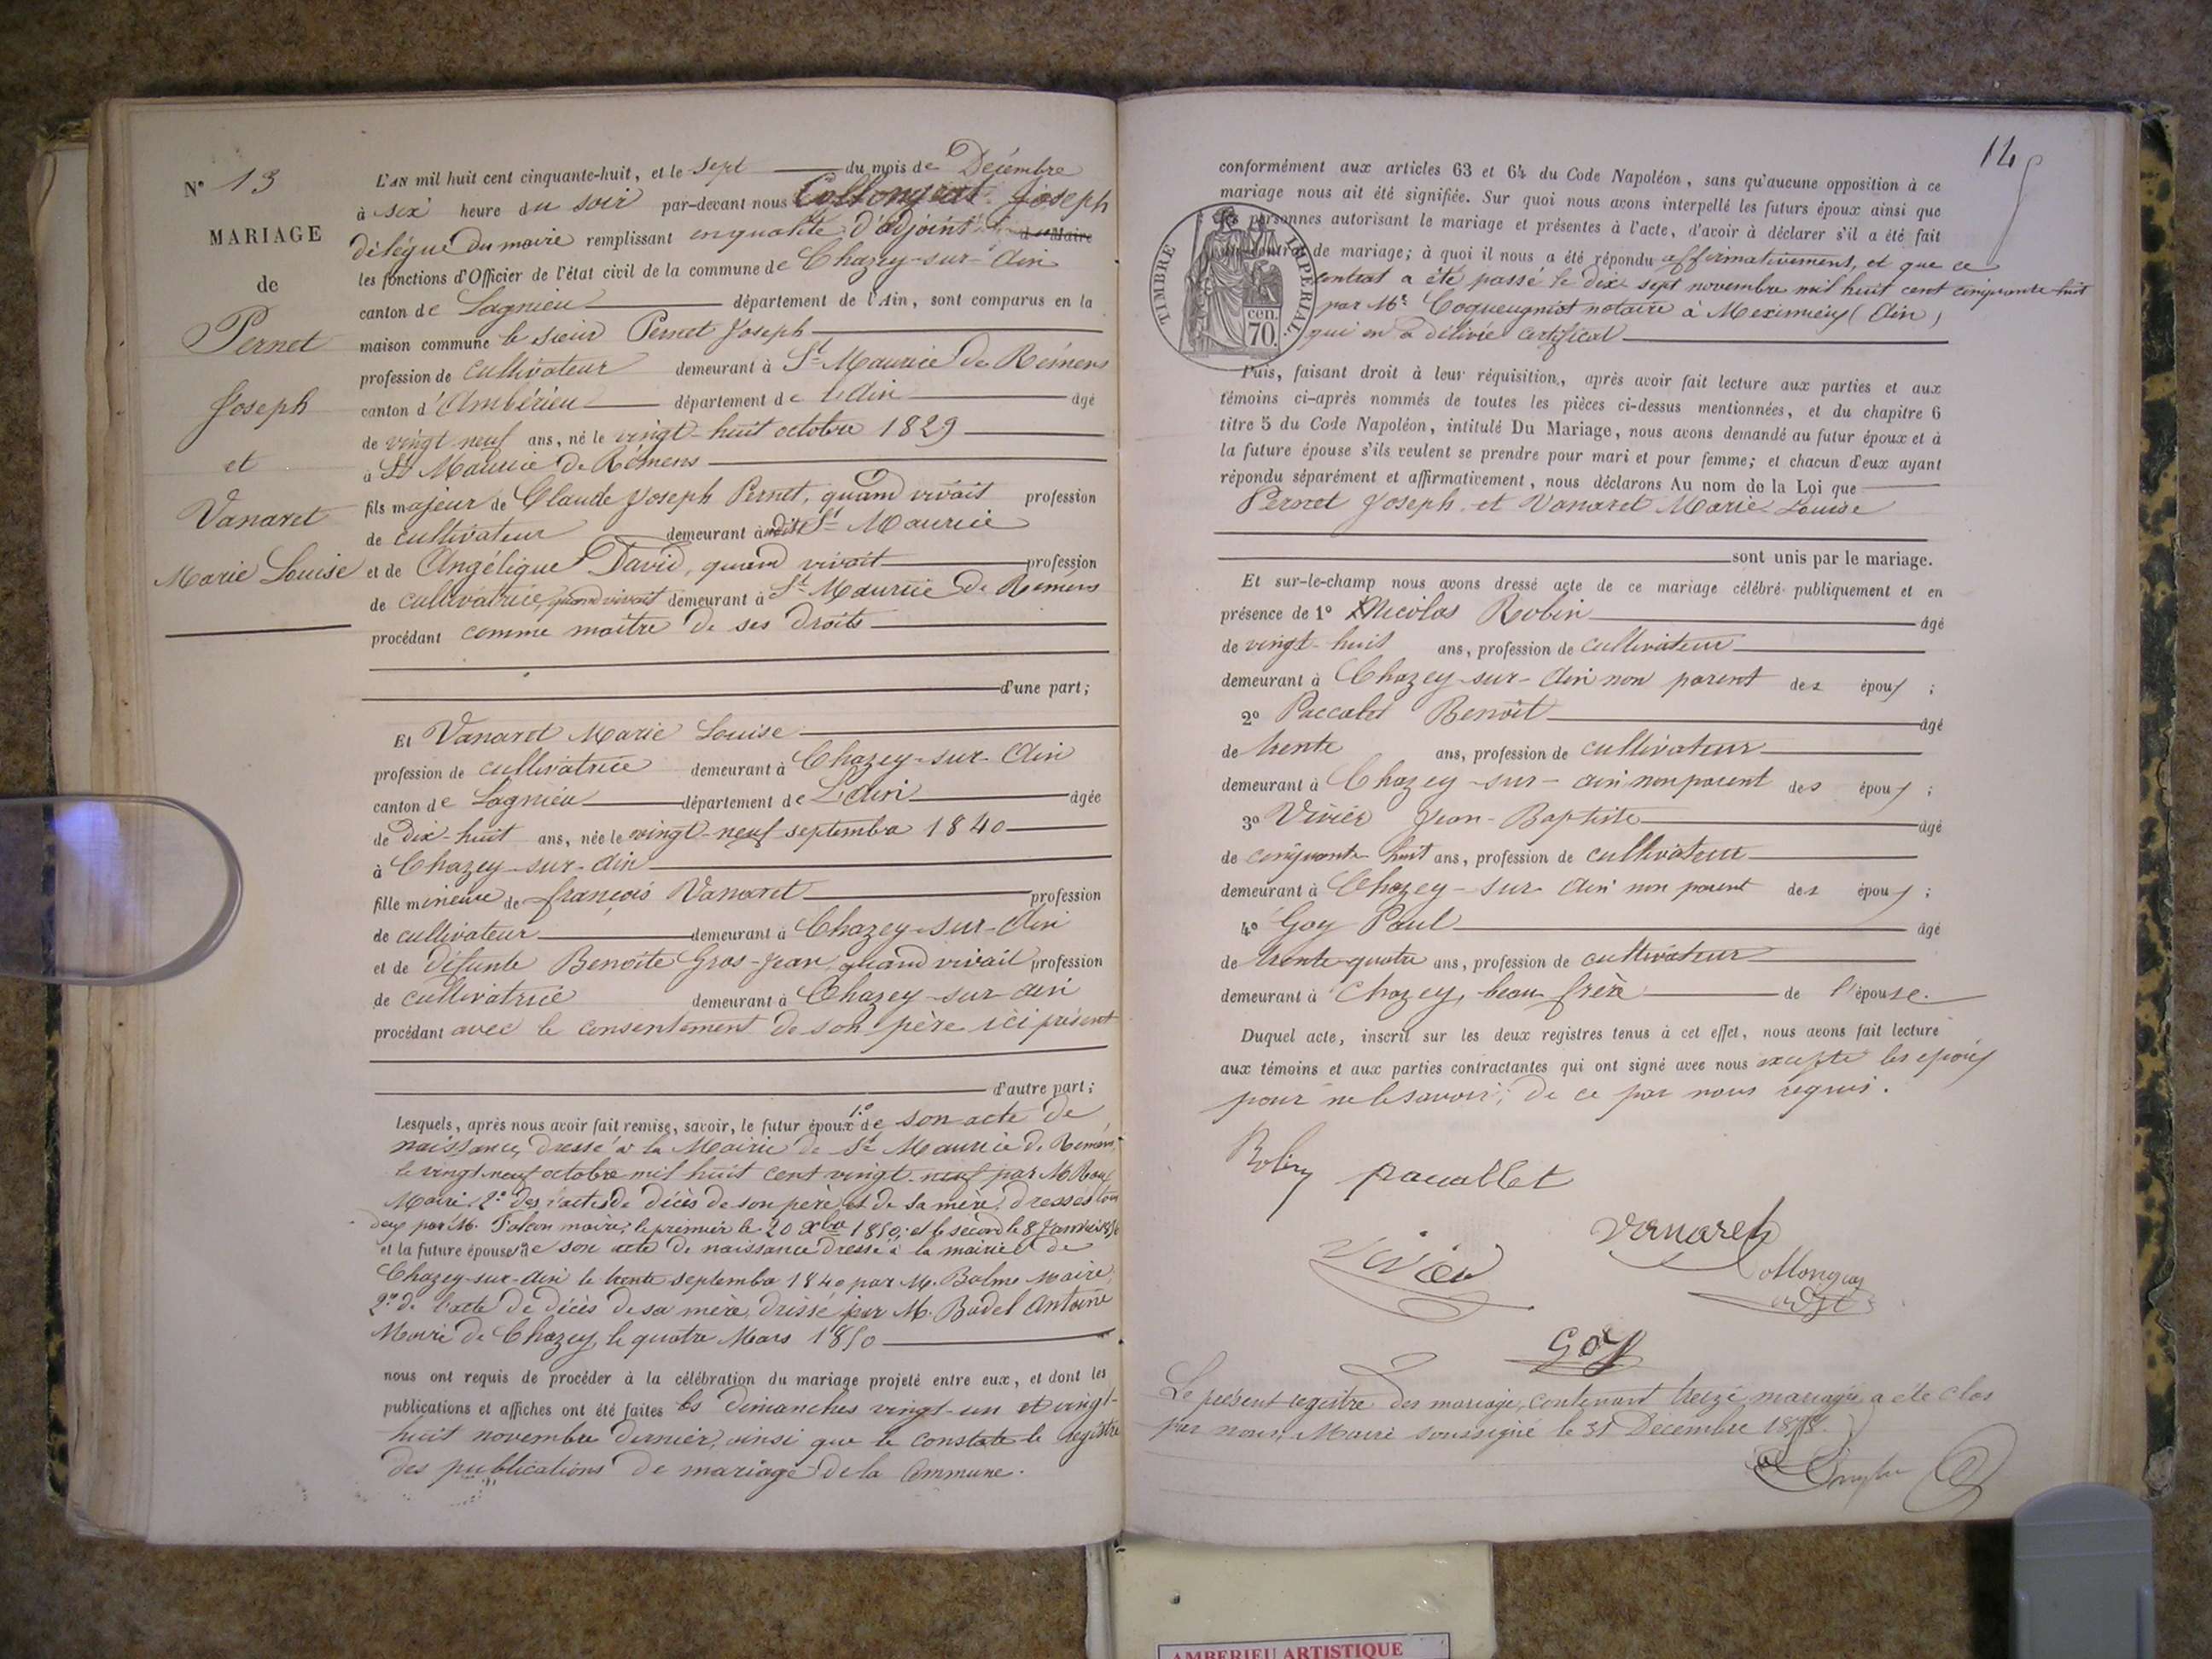 N° 13
MARIAGE
de
Pernet
Joseph
et
Vanaret
Marie Louise
L'AN mil huit cent cinquante-huit, et le sept du mois de Décembre
à six heure du soir par-devant nous Collongeat Joseph
délégué du maire remplissant en qualité d'adjoint du Maire
les fonctions d'Officier de l'état civil de la commune de Chazey-sur-Ain
canton de Lagnieu département de l'Ain, sont comparus en la
maison commune le sieur Pernet Joseph
profession de cultivateur demeurant à St Maurice de Rémens
canton d'Ambérieu département de l'Ain âgé
de vingt neuf ans, né le vingt-huit octobre 1829
à St Maurice de Rémens
fils majeur de Claude Joseph Pernet, quand vivait profession
de cultivateur demeurant à St Maurice
et de Angélique David, quand vivait profession
de cultivatrice, quand vivait demeurant à St Maurice de Remens
procédant comme maître de ses droits
d'une part;
Et Vanaret Marie Louise
profession de cultivatrice demeurant à Chazey-sur-Ain
canton de Lagnieu département de L'Ain âgée
de dix-huit ans, née le vingt-neuf septembre 1840
à Chazey-sur-Ain
fille mineure de françois Vanaret profession
de cultivateur demeurant à Chazey-sur-Ain
et de défunte Benoite Gros-Jean, quand vivait profession
de cultivatrice demeurant à Chazey-sur-ain
procédant avec le consentement de son père ici présent
d'autre part;
Lesquels, après nous avoir fait remise, savoir, le futur époux 1.° de son acte de
naissance, dressé à la Mairie de St Maurice de Remens,
le vingt-neuf octobre mil huit cent vingt-neuf par M. Roux
Maire, 2° des actes de décès de son père et de sa mère, dressés tous
deux par M. Falcon maire, le premier le 20 Xbre 1850; et le second le 8 Janvier
et la future épouse de son acte de naissance dressé à la mairie de
Chazey-sur-Ain le trente septembre 1840 par M. Balme Maire,
2° de l'acte de décès de sa mère, dressé par M. Badel Antoine
Maire de Chazey, le quatre Mars 1850
nous ont requis de procéder à la célébration du mariage projeté entre eux, et dont les
publications et affiches ont été faites les Dimanches vingt-un et vingt-
huit novembre dernier, ainsi que le constate le registre
des publications de mariage de la Commune.
14
conformément aux articles 63 et 64 du Code Napoléon, sans qu'aucune opposition à ce
mariage nous ait été signifiée. Sur quoi nous avons interpellé les futurs époux ainsi que
les personnes autorisant le mariage et présentes à l'acte, d'avoir à déclarer s'il a été fait
un contrat de mariage; à quoi il nous a été répondu affirmativement, et que ce
contrat a été passé le dix sept novembre mil huit cent cinquante huit
par Me Coqueugniot notaire à Meximieux (Ain)
qui en a délivré certificat
TIMBRE IMPÉRIAL
cen.
70.
Puis, faisant droit à leur réquisition, après avoir fait lecture aux parties et aux
témoins ci-après nommés de toutes les pièces ci-dessus mentionnées, et du chapitre 6
titre 5 du Code Napoléon, intitulé Du Mariage, nous avons demandé au futur époux et à
la future épouse s'ils veulent se prendre pour mari et pour femme; et chacun d'eux ayant
répondu séparément et affirmativement, nous déclarons Au nom de la Loi que
Pernet Joseph et Vanaret Marie Louise
sont unis par le mariage.
Et sur-le-champ nous avons dressé acte de ce mariage célébré publiquement et en
présence de 1° Nicolas Robin âgé
de vingt-huit ans, profession de cultivateur
demeurant à Chazey-sur-Ain non parent des époux ;
2° Paccalet Benoît âgé
de trente ans, profession de cultivateur
demeurant à Chazey-sur-ain non parent des époux ;
3° Vivier Jean-Baptiste âgé
de cinquante huit ans, profession de cultivateur
demeurant à Chazey-sur Ain non parent des époux ;
4° Goy Paul âgé
de trente-quatre ans, profession de cultivateur
demeurant à Chazey, beau frère de l'épouse.
Duquel acte, inscrit sur les deux registres tenus à cet effet, nous avons fait lecture
aux témoins et aux parties contractantes qui ont signé avec nous excepté les époux
pour ne le savoir, de ce par nous requis.
Robin pacallet
Vanaret
Vivier
Collongeat
adjt
Goy
Le présent registre des mariages, contenant treize mariages a été clos
par nous, Maire soussigné le 31 Décembre 1858.
AMBERIEU ARTISTIQUE